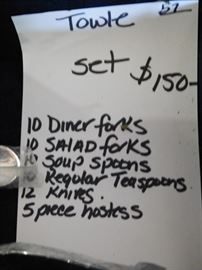 Towle
set $150-
10 Diner forks
10 SALAD forks
Soup spoons
Regular Teaspoons
12 Knives.
5 piece hostess